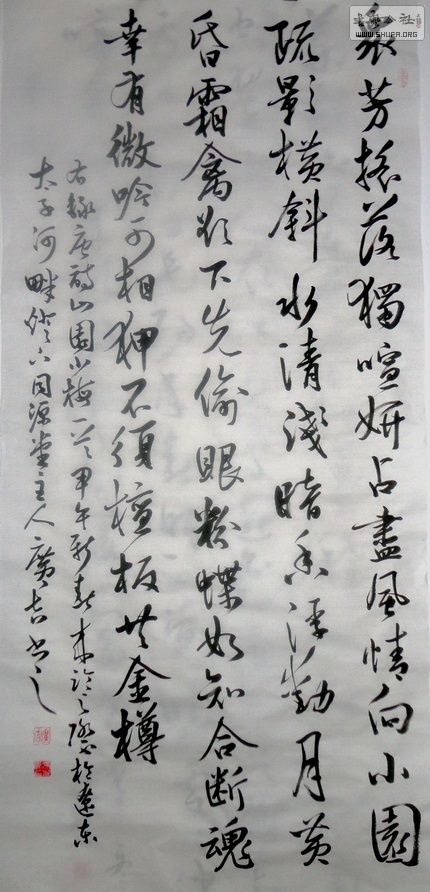 衆芳搖落獨喧妍占盡風情向小園
疏影橫斜水清淺暗香浮動月黃
昏霜禽欲下先偷眼粉蝶如知合斷魂
幸有微吟可相狎不須檀板共金樽
右錄唐詩山園小梅一首甲午新春來臨之際於遼東
太子河畔燈下同源堂主人廣吉書之
书法公社
WWW.SHUFA.ORG